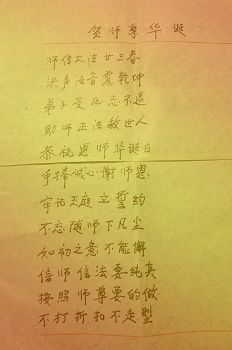 贺师尊华诞
师传大法廿三春
洪启法音震乾坤
弟子受托志不退
助师正法救世人
恭祝恩师华诞日
手捧诚心谢师恩
牢记天庭立誓约
不忘随师下凡尘
如初之意不能懈
信师信法要纯真
按照师尊要的做
不打折扣不走型